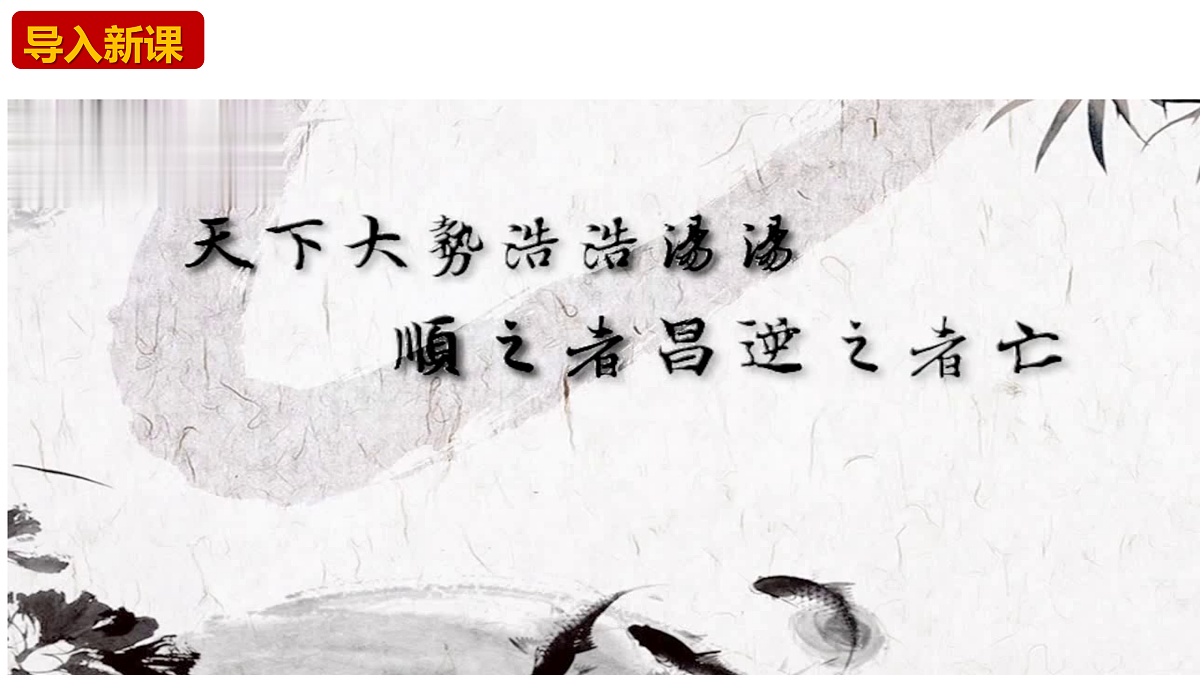 导入新课
天下大勢浩浩湯湯
順之者昌逆之者亡